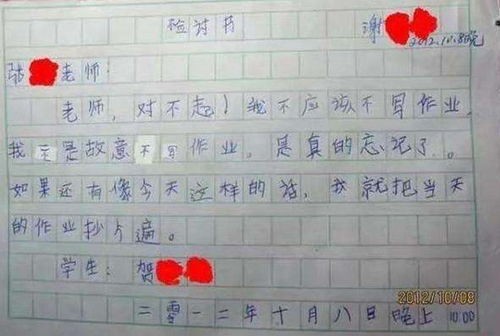 检讨书 谢
2012.10.8晚
张 老师:
老师,对不起!我不应该不写作业,
我不是故意不写作业,是真的忘记了。
如果还有像今天这样的话,我就把当天
的作业抄 遍。
学生:贺
2012/10/08
二零一二年十月八日晚上10:00